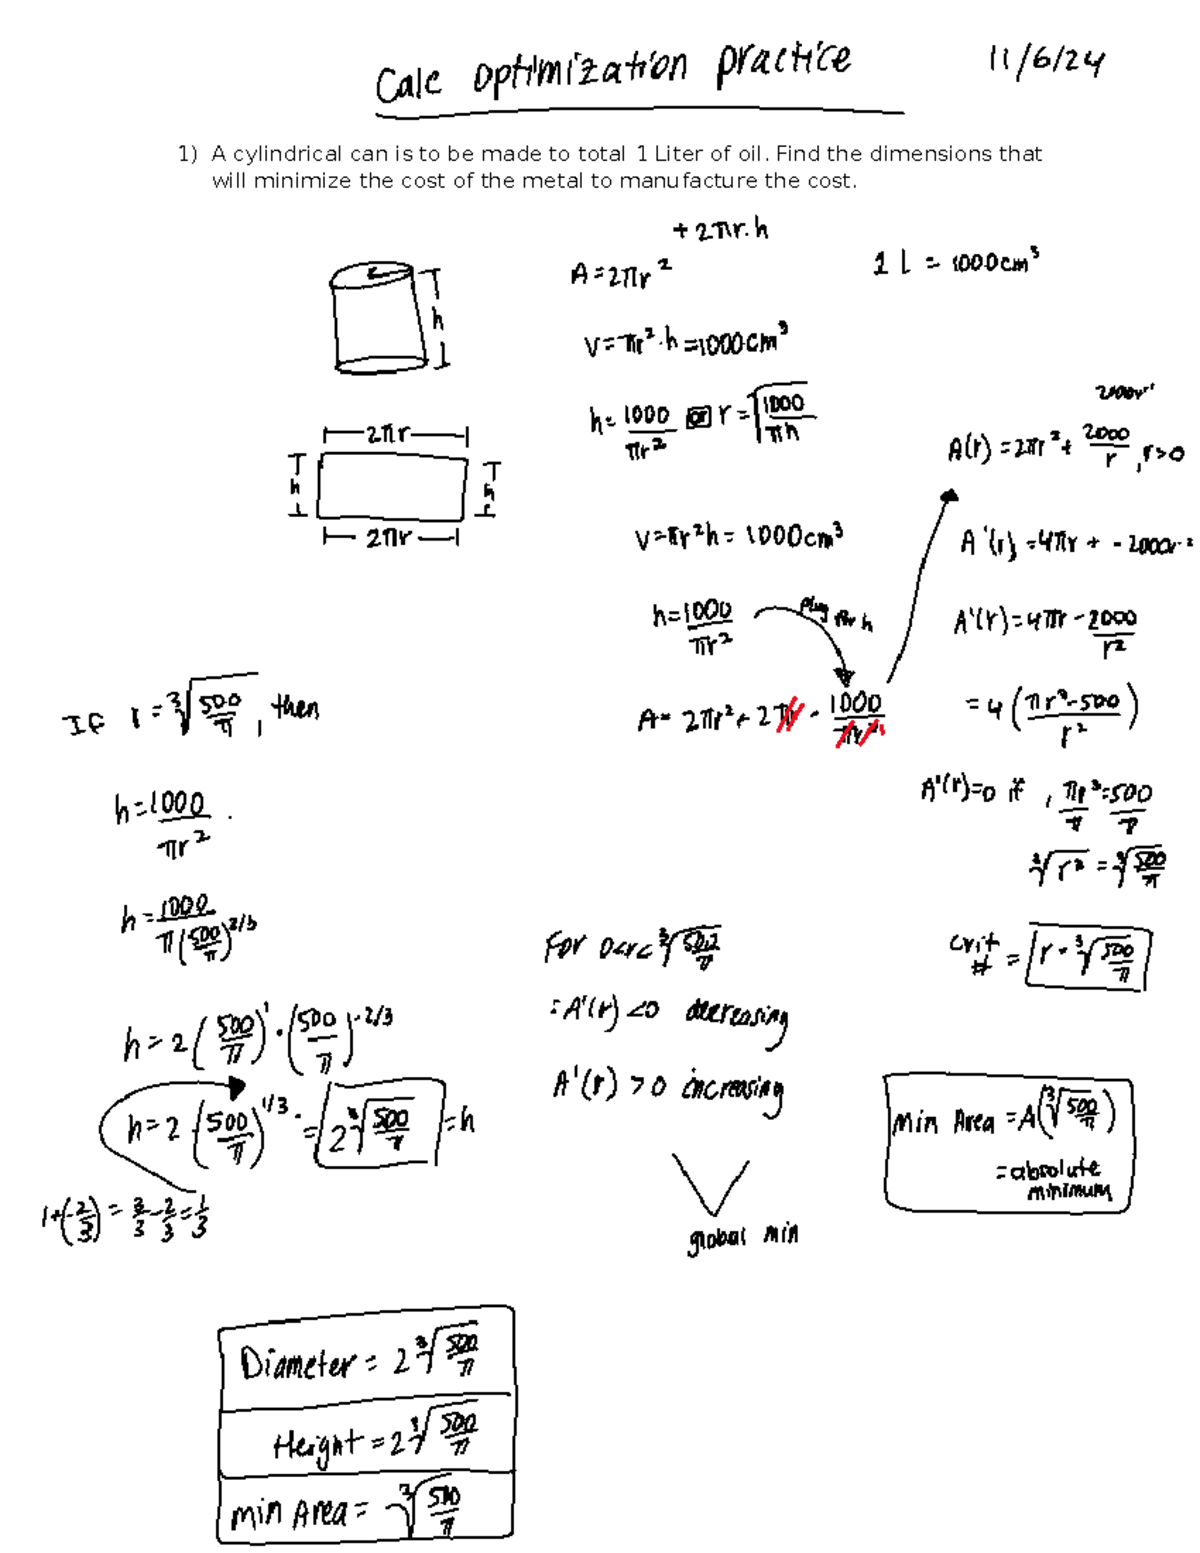 Calc optimization practice 11/6/24
1) A cylindrical can is to be made to total 1 Liter of oil. Find the dimensions that
will minimize the cost of the metal to manufacture the cost.
+ 2πr·h
A = 2πr²
1 L = 1000cm³
h
V = πr²·h = 1000cm³
h = 1000/πr² or r = √(1000/πh)
2πr
h
h
2πr
V = πr²h = 1000cm³
h = 1000/πr²
plug for h
A = 2πr² + 2πr · 1000/πr²
2000r⁻¹
A(r) = 2πr² + 2000/r, r>0
A'(r) = 4πr + - 2000r⁻²
A'(r) = 4πr - 2000/r²
= 4(πr³-500/r²)
A'(r)=0 if, πr³/π = 500/π
³√r³ = ³√(500/π)
crit # = r = ³√(500/π)
If r = ³√(500/π), then
h = 1000/πr²
h = 1000/π(500/π)^2/3
h = 2(500/π)^1 · (500/π)^-2/3
h = 2(500/π)^1/3 = 2³√(500/π) = h
1+(-2/3) = 3/3 - 2/3 = 1/3
For 0<r<³√(500/π)
= A'(r) <0 decreasing
A'(r) >0 increasing
global min
min Area = A(³√(500/π))
= absolute
minimum
Diameter = 2³√(500/π)
Height = 2³√(500/π)
min Area = ³√(500/π)